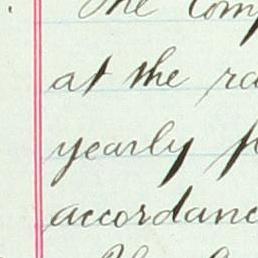 The Comp
at the ra
yearly f
accordanc